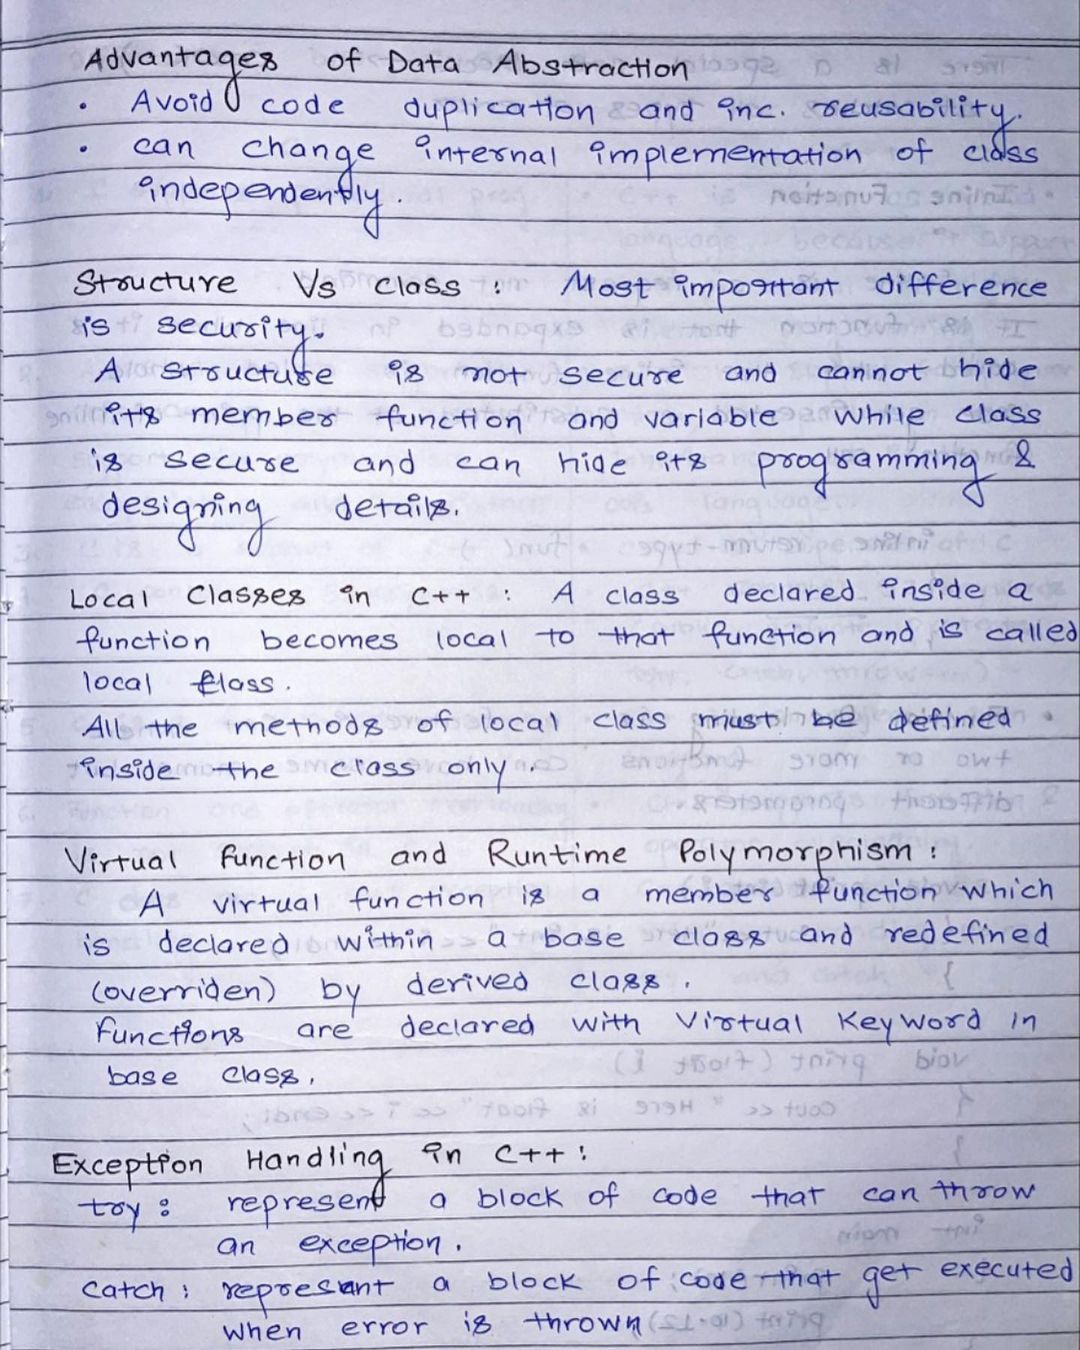 Advantages of Data Abstraction
• Avoid code duplication and inc. reusability.
• can change internal implementation of class
independently.
Structure Vs class : Most important difference
is security.
A structure is not secure and cannot hide
its member function and variable while class
is secure and can hide its programming &
designing details.
Local Classes in C++ : A class declared inside a
function becomes local to that function and is called
local class.
All the methods of local class must be defined
inside the class only.
Virtual Function and Runtime Polymorphism :
A virtual function is a member function which
is declared within a base class and redefined
(overriden) by derived class.
Functions are declared with Virtual Keyword in
base class.
Exception Handling in C++ :
try : represent a block of code that can throw
an exception.
Catch : represent a block of code that get executed
when error is thrown